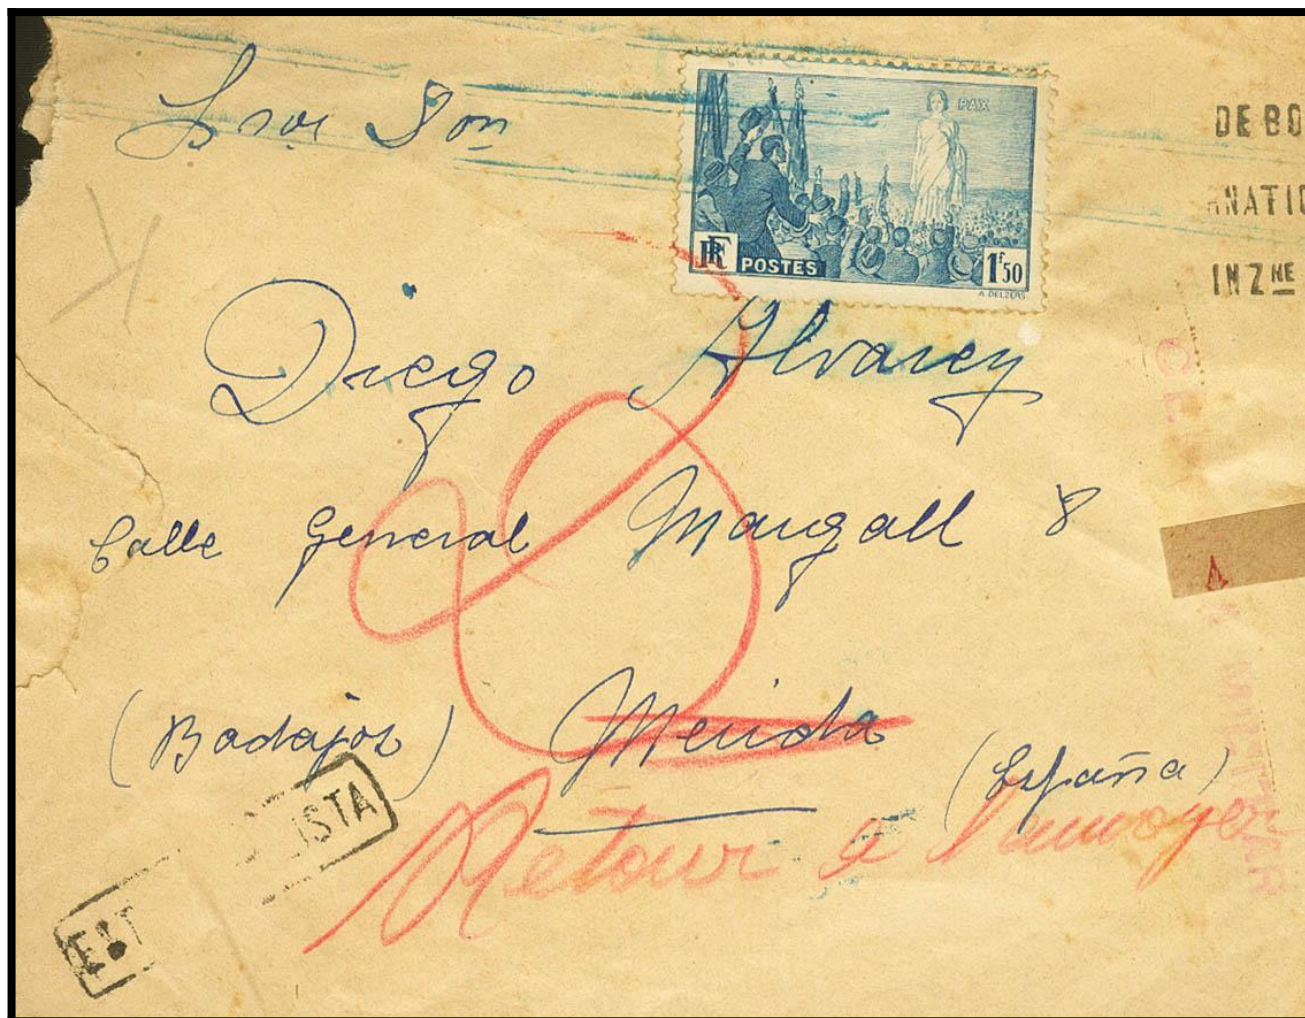 Sror Don
PAX
RF POSTES 1f50
A. DELZERS
DE BO
RNATIO
IN ZNE
Diego Alvarez
Calle General Margall 8
(Badajoz) Merida (España)
Retour a l'envoyer